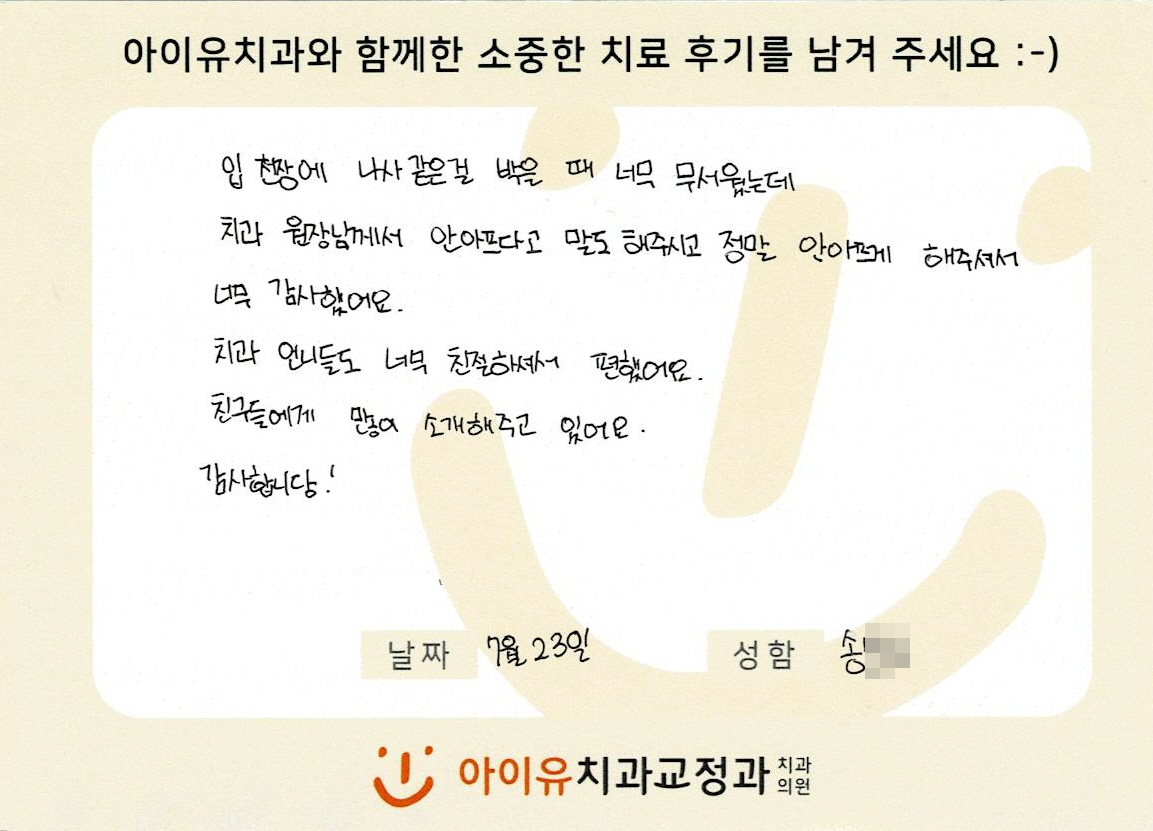 아이유치과와 함께한 소중한 치료 후기를 남겨 주세요 :-)
입 천장에 나사 같은걸 박을 때 너무 무서웠는데
치과 원장님께서 안아프다고 말도 해주시고 정말 안아프게 해주셔서
너무 감사했어요.
치과 언니들도 너무 친절하셔서 편했어요.
친구들에게 많이 소개해주고 있어요.
감사합니당!
날짜 7월 23일 성함 송
아이유치과교정과 치과
의원